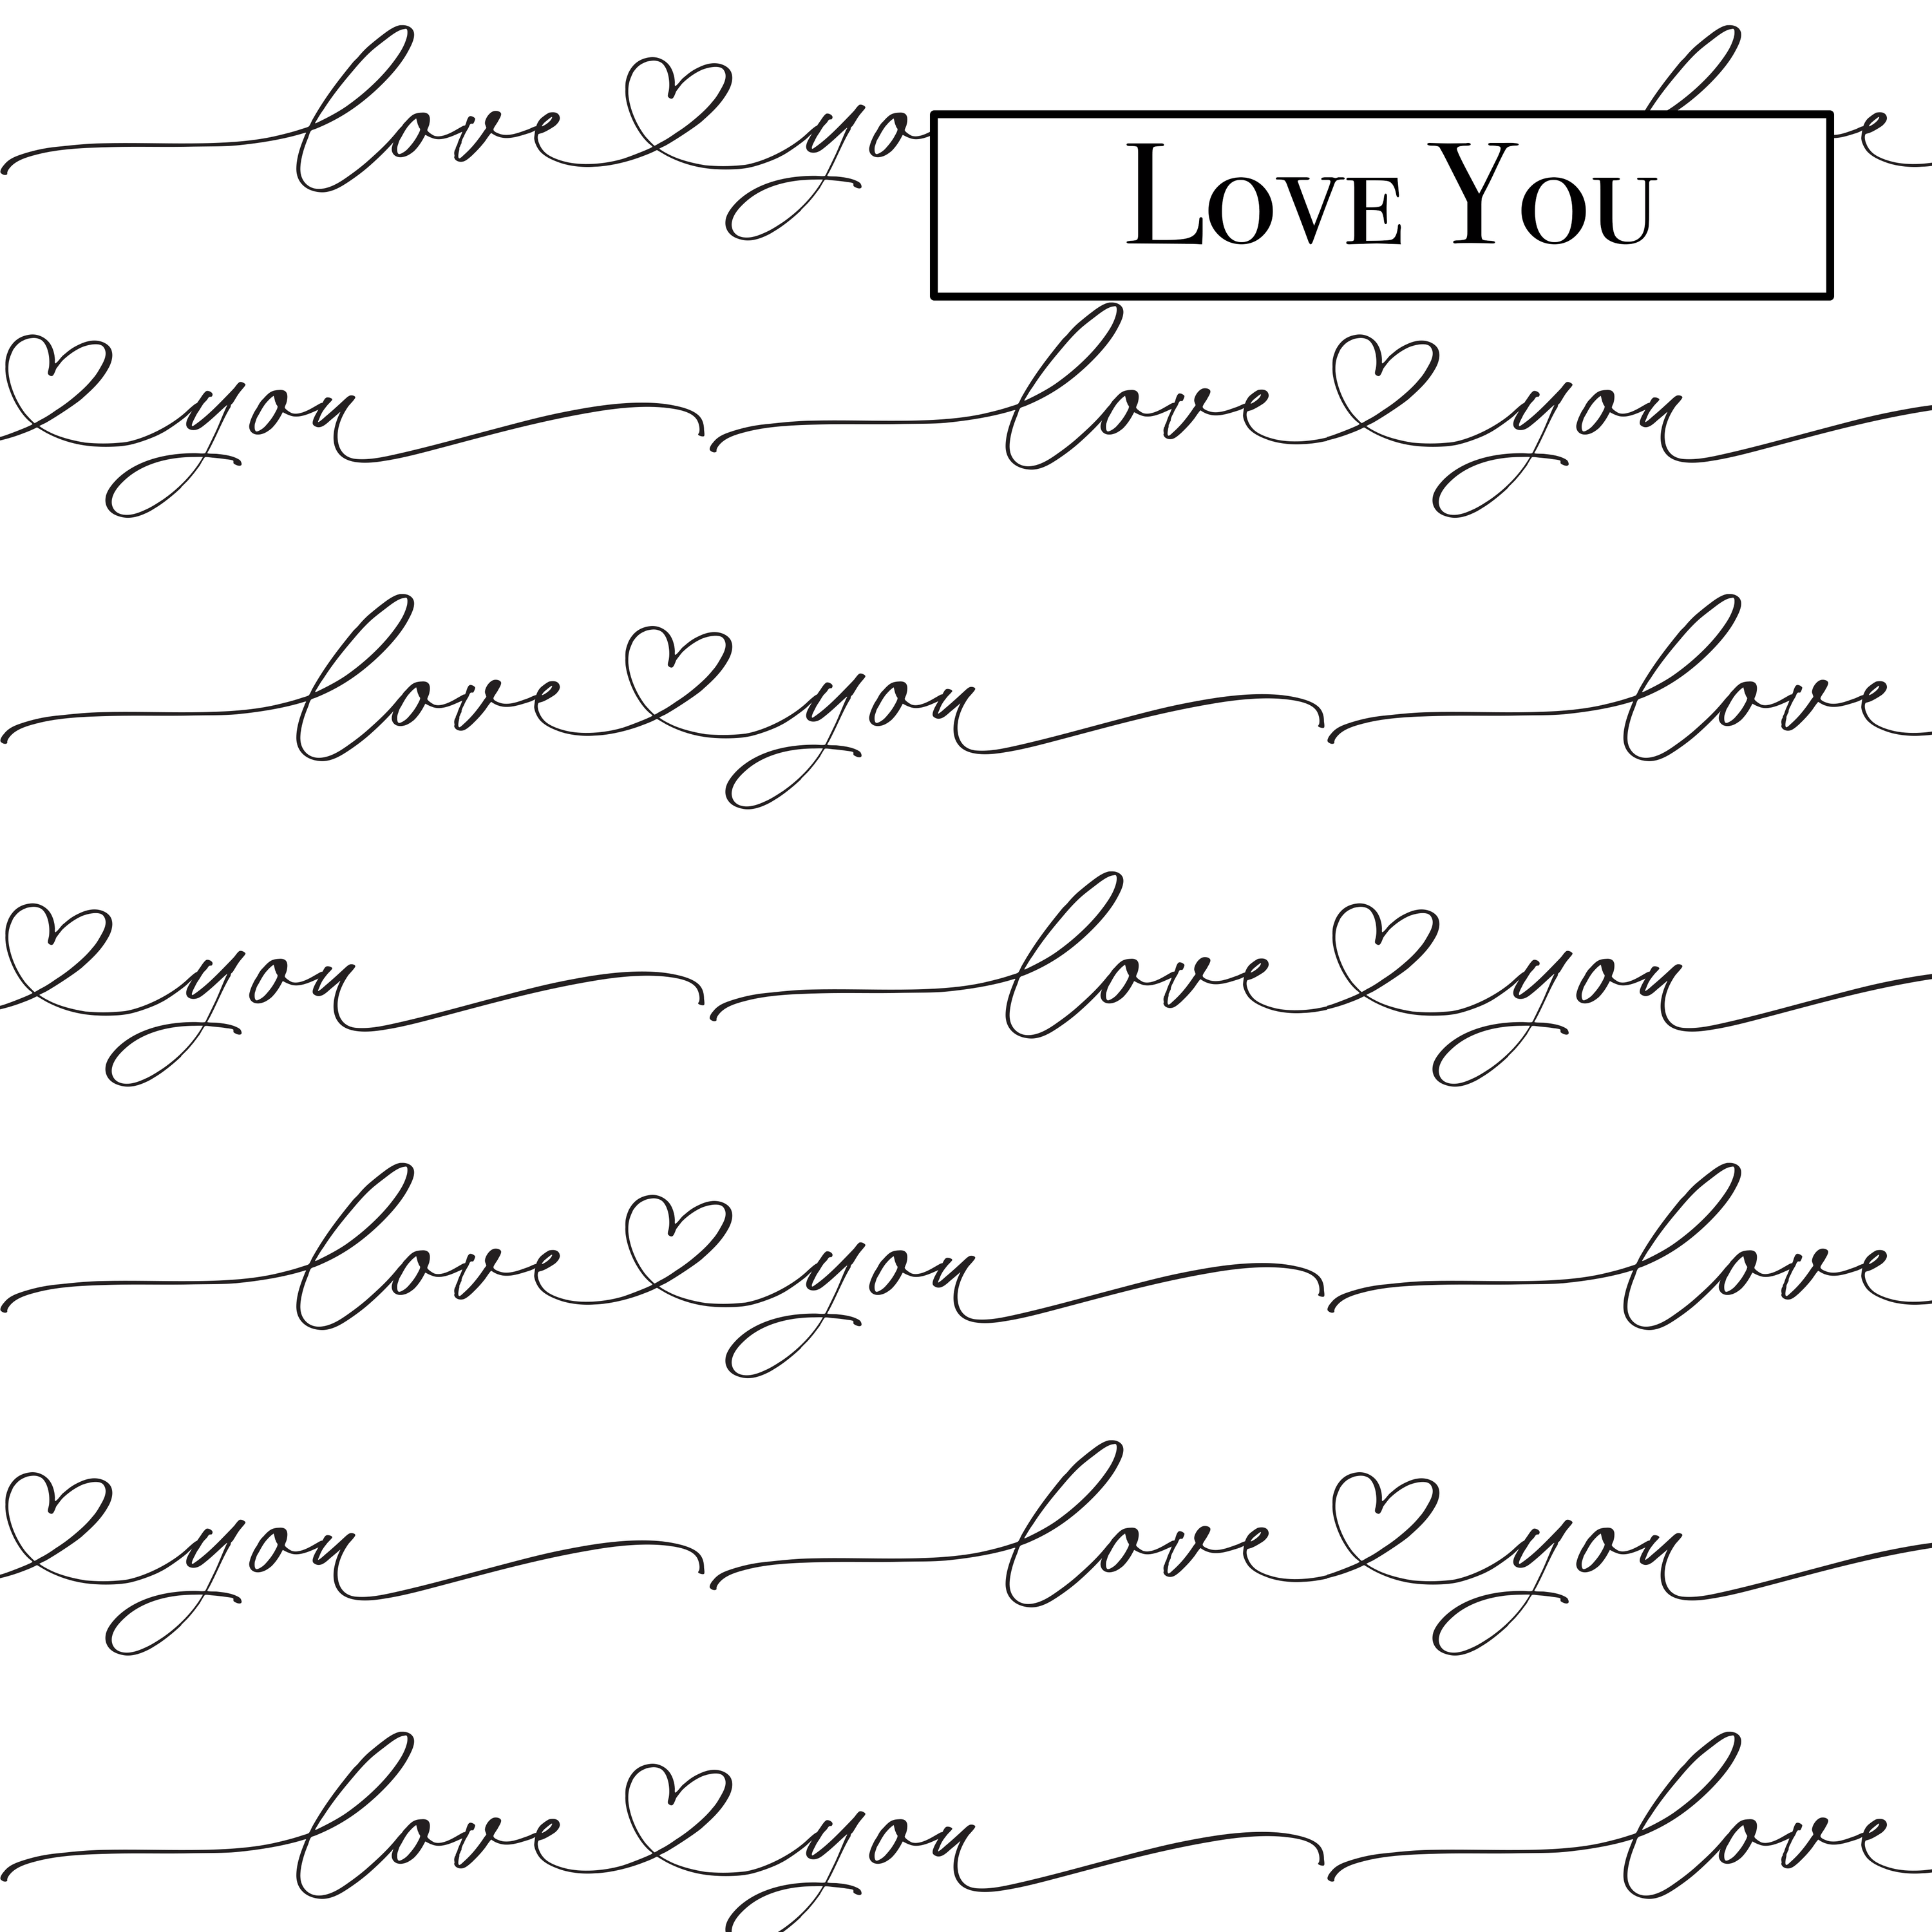 love you
LOVE YOU
you love you
love you love
you love you
love you love
you love you
love you love